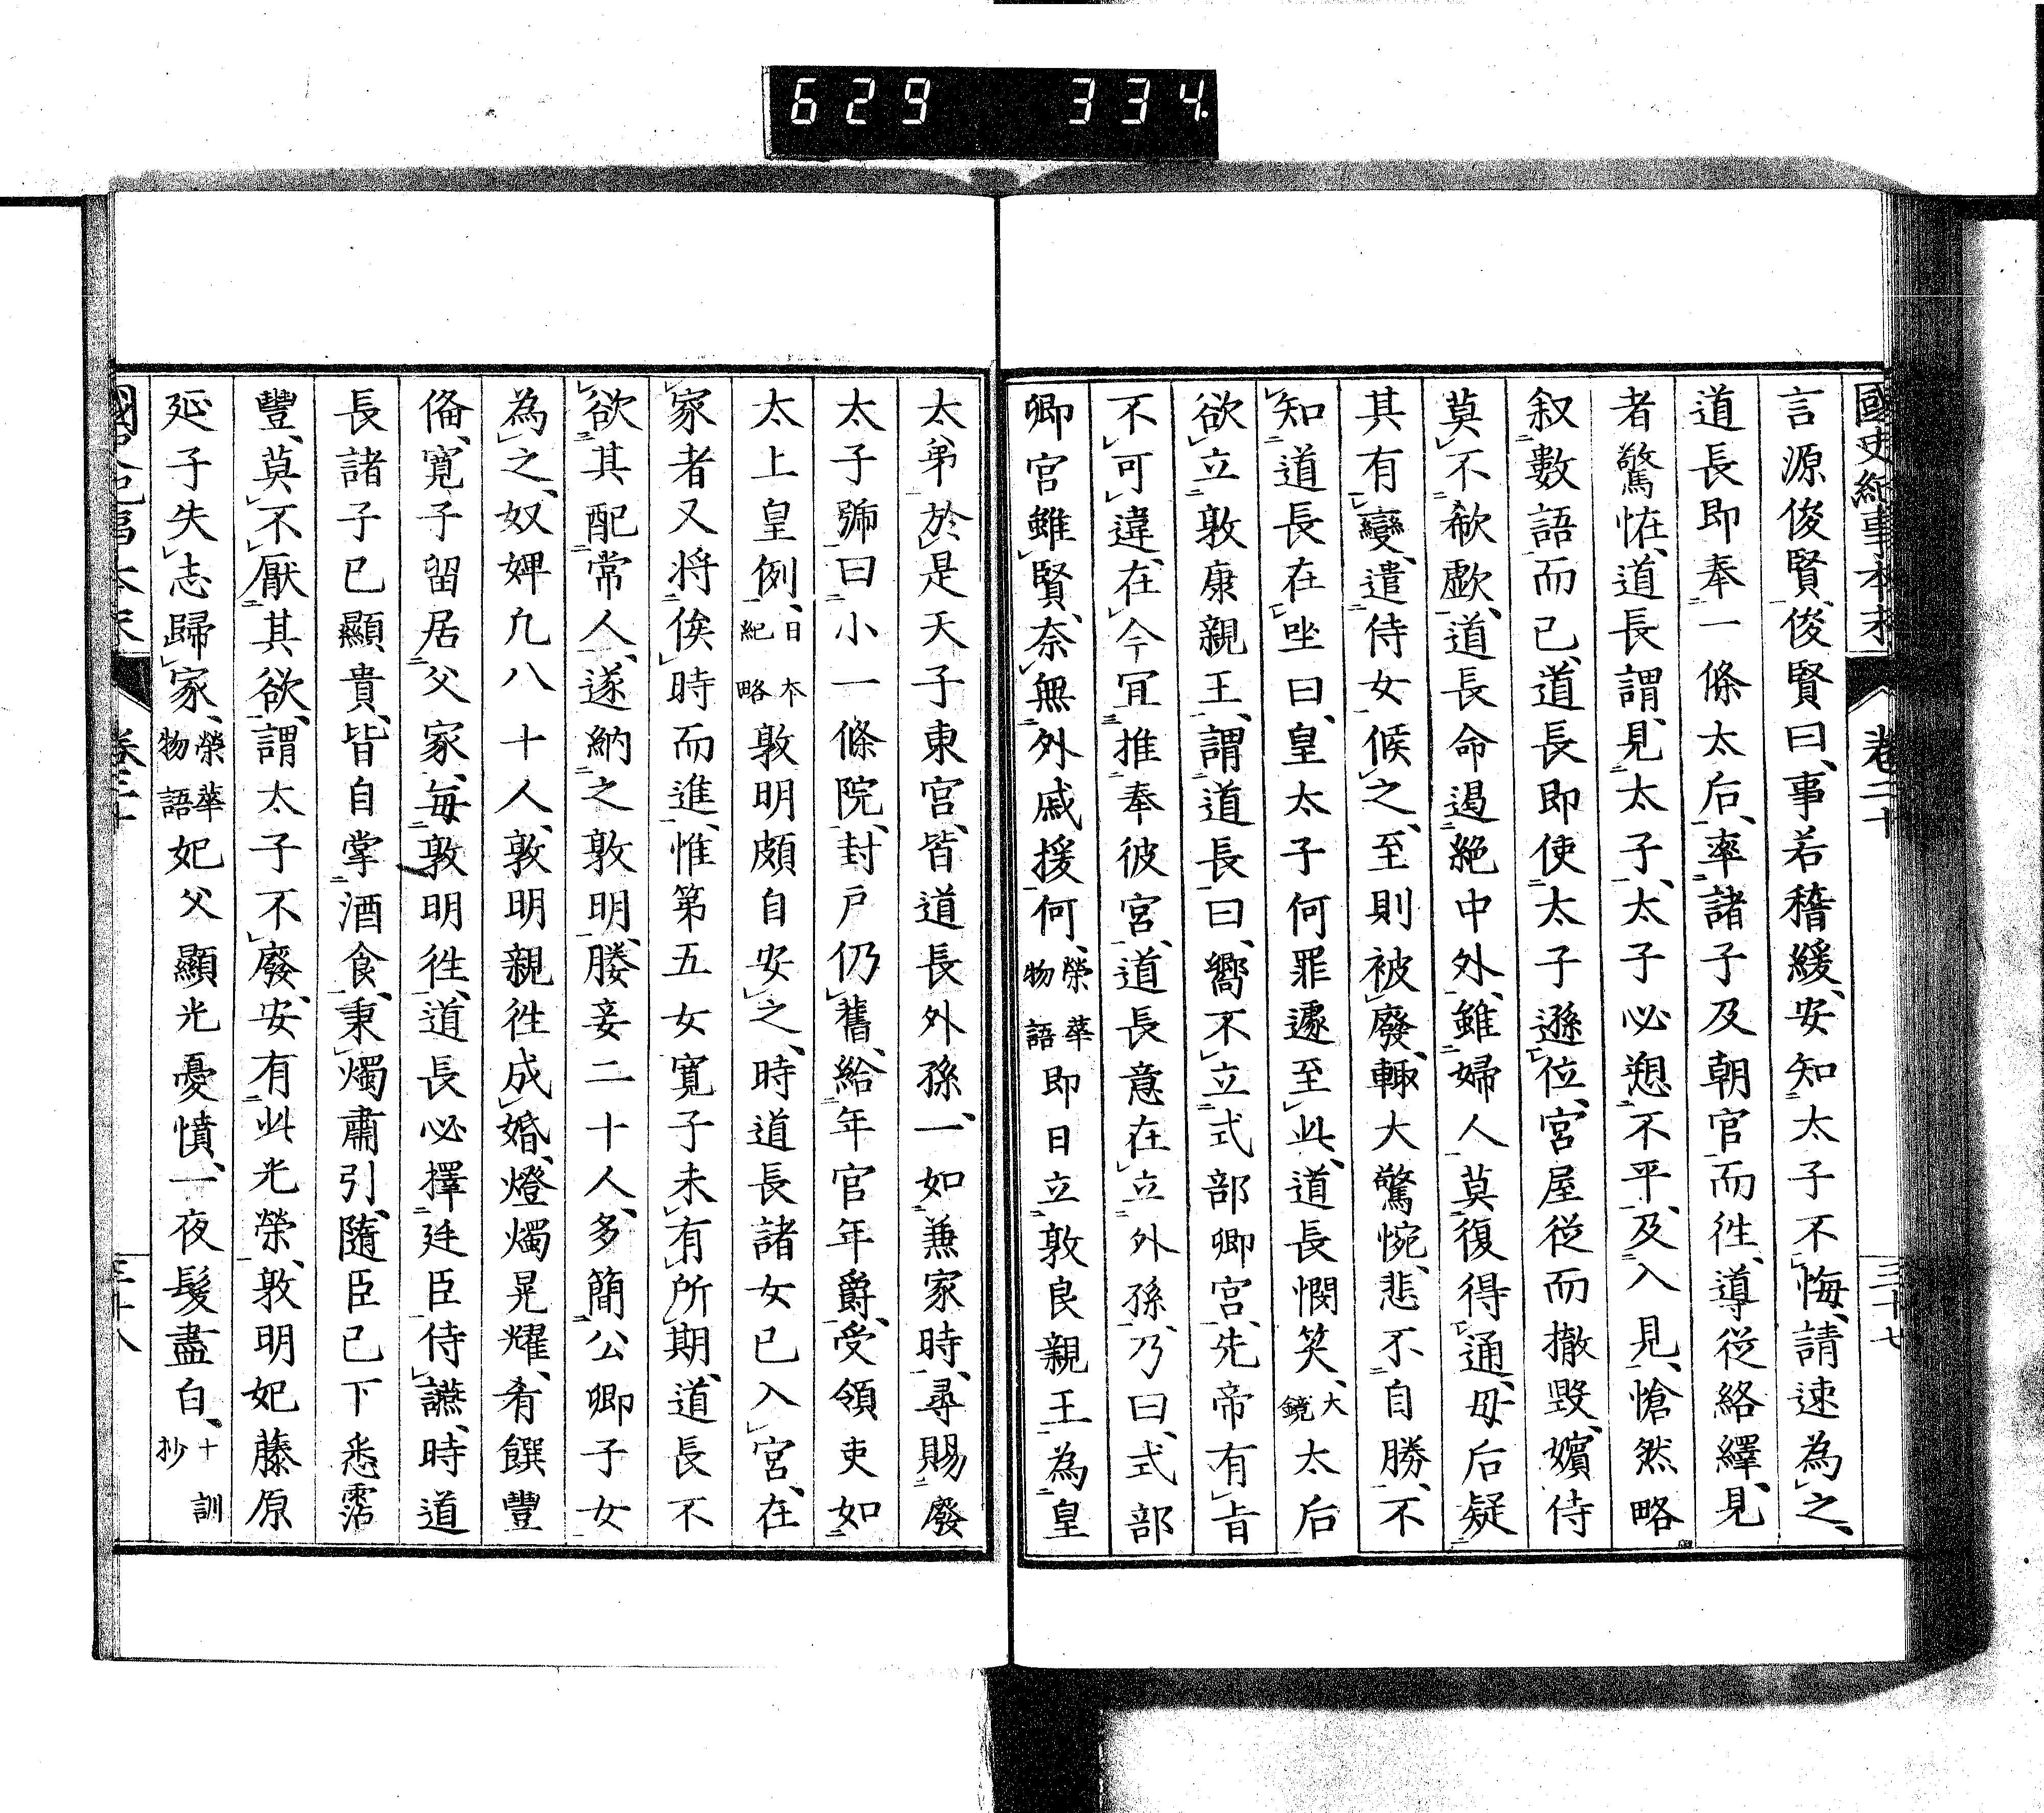 629 334.
國史紀事本末 卷二十 三十七
言源俊賢、俊賢曰、事若稽緩、安知太子不悔、請速為之、
道長即奉一條太后、率諸子及朝官而徃、導從絡繹、見
者驚恠、道長謂、見太子、太子必愬不平、及入見、愴然略
叙數語而已、道長即使太子遜位、宮屋從而撤毀、嬪侍
莫不欷歔、道長命遏絶中外、雖婦人莫復得通、母后疑
其有變、遣侍女候之、至則被廢、輙大驚惋、悲不自勝、不
知道長在坐曰、皇太子何罪遽至此、道長憫笑、大鏡太后
欲立敦康親王、謂道長曰、嚮不立式部卿宮、先帝有旨
不可違、在今冝推奉彼宮、道長意在立外孫、乃曰、式部
卿宮雖賢、奈無外戚援何、榮華物語即日立敦良親王為皇
太弟、於是天子東宮、皆道長外孫、一如兼家時、尋賜廢
太子號曰小一條院、封戶仍舊、給年官年爵、受領吏如
太上皇例、日本紀略敦明頗自安之、時道長諸女已入宮、在
家者又将俟時而進、惟第五女寛子未有所期、道長不
欲其配常人、遂納之敦明、媵妾二十人、多簡公卿子女
為之、奴婢九八十人、敦明親徃成婚、燈燭晃耀、肴饌豐
俻、寛子留居父家、毎敦明徃、道長必擇廷臣侍讌、時道
長諸子已顯貴、皆自掌酒食、秉燭肅引、隨臣已下悉霑
豐、莫不厭其欲、謂太子不廢、安有此光榮、敦明妃藤原
延子失志歸家、榮華物語妃父顯光憂憤、一夜髮盡白、十訓抄
三十八